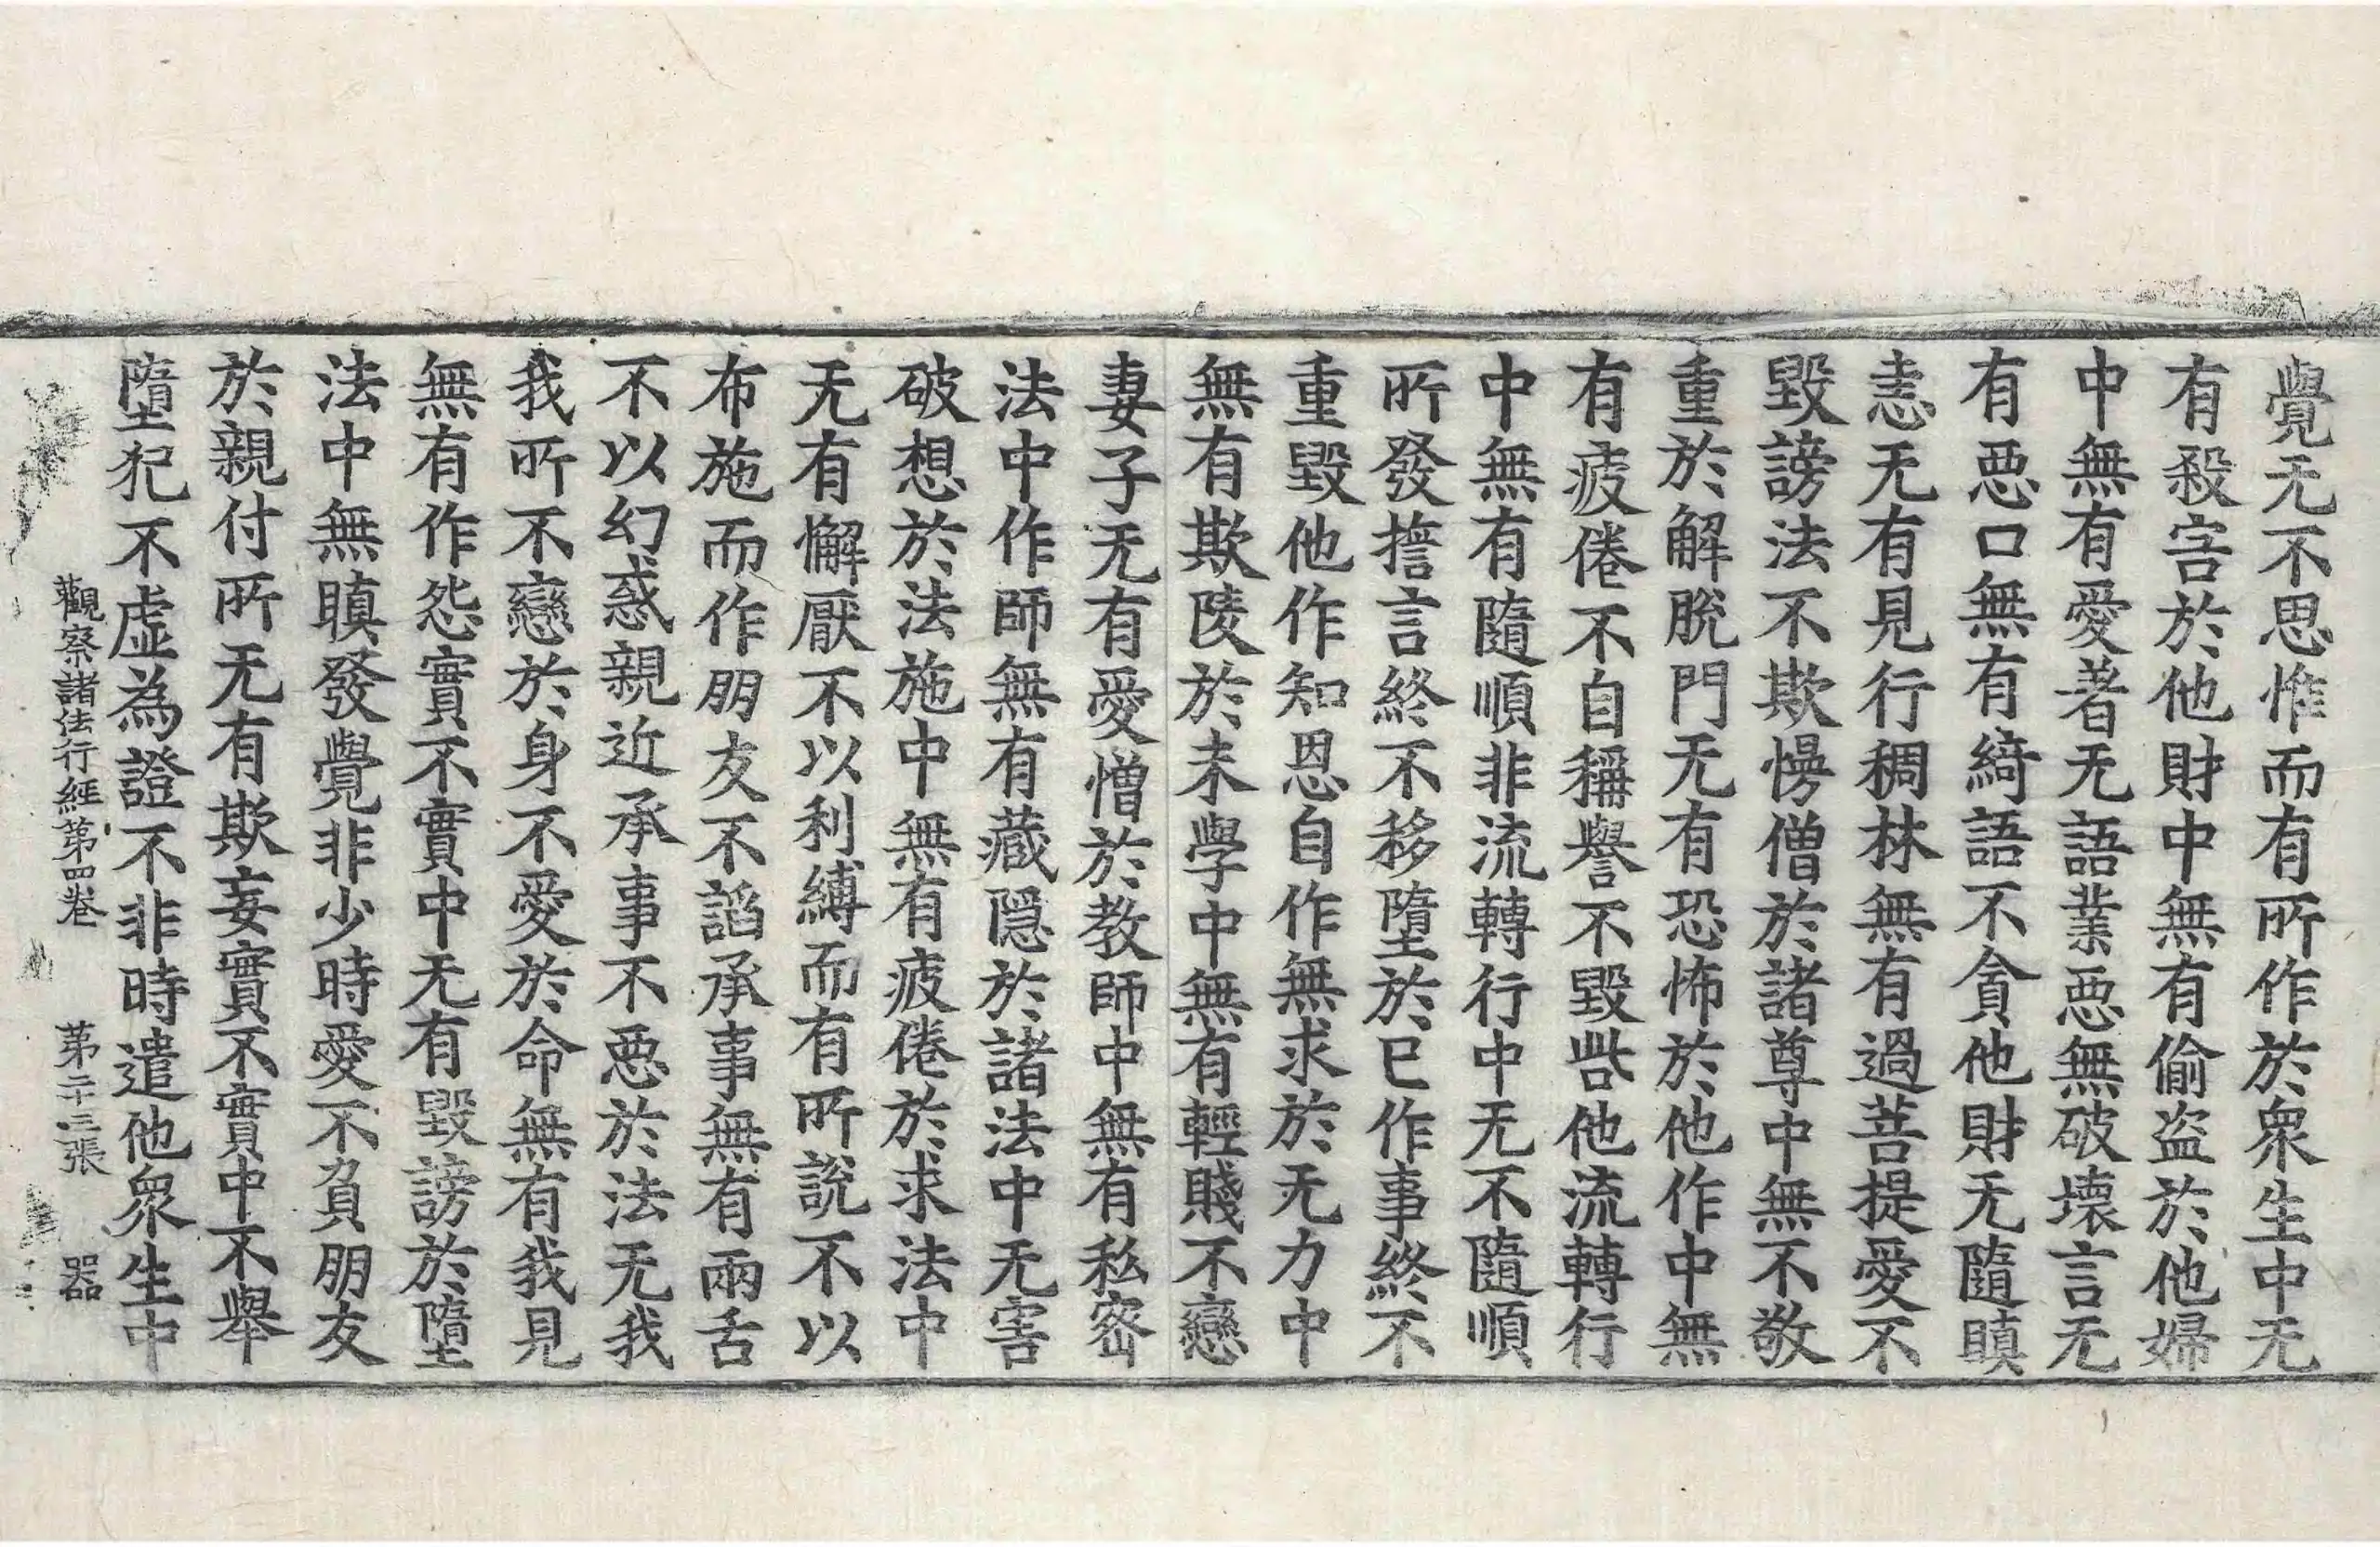 覺无不思惟而有所作於衆生中无
有殺害於他財中無有偷盗於他婦
中無有愛著无語業惡無破壞言无
有惡口無有綺語不貪他財无隨瞋
恚无有見行稠林無有過菩提愛不
毀謗法不欺慢僧於諸尊中無不敬
重於解脫門无有恐怖於他作中無
有疲倦不自稱譽不毀呰他流轉行
中無有隨順非流轉行中无不隨順
所發誓言終不移墮於已作事終不
重毀他作知恩自作無求於无力中
無有欺陵於未學中無有輕賤不戀
妻子无有愛憎於教師中無有私密
法中作師無有藏隱於諸法中无害
破想於法施中無有疲倦於求法中
无有懈厭不以利縛而有所說不以
布施而作朋友不諂承事無有兩舌
不以幻惑親近承事不惡於法无我
我所不戀於身不愛於命無有我見
無有作怨實不實中无有毀謗於墮
法中無瞋發覺非少時愛不負朋友
於親付所无有欺妄實不實中不舉
墮犯不虛為證不非時遣他衆生中
觀察諸法行經第四卷 第二十三張 器